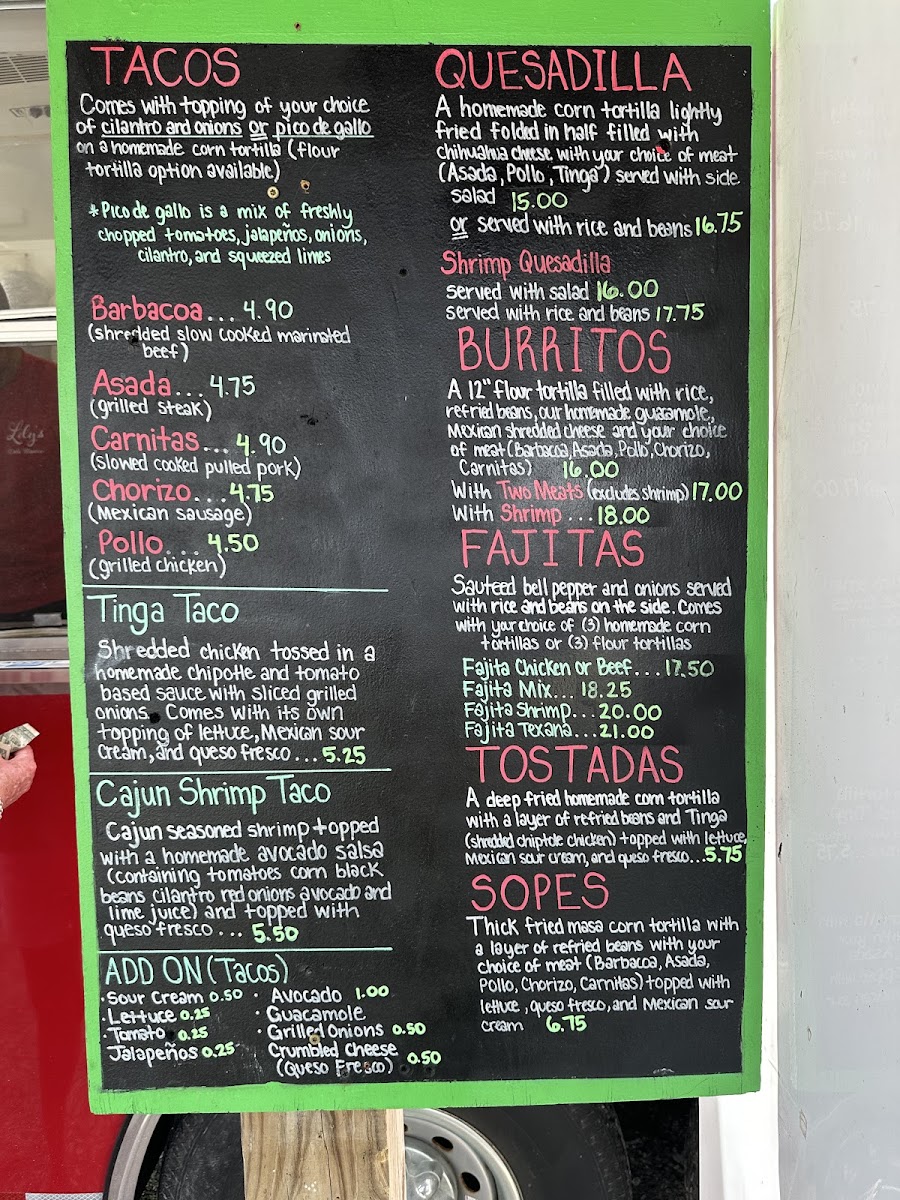 TACOS
Comes with topping of your choice
of cilantro and onions or pico de gallo
on a homemade corn tortilla (flour
tortilla option available)
*Pico de gallo is a mix of freshly
chopped tomatoes, jalapeños, onions,
cilantro, and squeezed limes
Barbacoa... 4.90
(shredded slow cooked marinated
beef)
Asada... 4.75
(grilled steak)
Carnitas... 4.90
(slowed cooked pulled pork)
Chorizo... 4.75
(Mexican sausage)
Pollo... 4.50
(grilled chicken)
Tinga Taco
Shredded chicken tossed in a
homemade chipotle and tomato
based sauce with sliced grilled
onions. Comes with its own
topping of lettuce, Mexican sour
cream, and queso fresco... 5.25
Cajun Shrimp Taco
Cajun seasoned shrimp topped
with a homemade avocado salsa
(containing tomatoes corn black
beans cilantro red onions avocado and
lime juice) and topped with
queso fresco... 5.50
ADD ON (Tacos)
·Sour Cream 0.50
·Lettuce 0.25
·Tomato 0.25
Jalapeños 0.25
· Avocado 1.00
· Guacamole
· Grilled Onions 0.50
Crumbled Cheese 0.50
(Queso Fresco)
QUESADILLA
A homemade corn tortilla lightly
fried folded in half filled with
chihuahua cheese with your choice of meat
(Asada, Pollo, Tinga) served with side
salad 15.00
or served with rice and beans 16.75
Shrimp Quesadilla
served with salad 16.00
served with rice and beans 17.75
BURRITOS
A 12" flour tortilla filled with rice,
refried beans, our homemade guacamole,
Mexican shredded cheese and your choice
of meat (Barbacoa, Asada, Pollo, Chorizo,
Carnitas) 16.00
With Two Meats (excludes shrimp) 17.00
With Shrimp... 18.00
FAJITAS
Sauteed bell pepper and onions served
with rice and beans on the side. Comes
with your choice of (3) homemade corn
tortillas or (3) flour tortillas
Fajita Chicken or Beef... 17.50
Fajita Mix... 18.25
Fajita Shrimp... 20.00
Fajita Texana... 21.00
TOSTADAS
A deep fried homemade corn tortilla
with a layer of refried beans and Tinga
(shredded chipotle chicken) topped with lettuce,
Mexican sour cream, and queso fresco... 5.75
SOPES
Thick fried masa corn tortilla with
a layer of refried beans with your
choice of meat (Barbacoa, Asada,
Pollo, Chorizo, Carnitas) topped with
lettuce, queso fresco, and Mexican sour
cream 6.75
Lily's